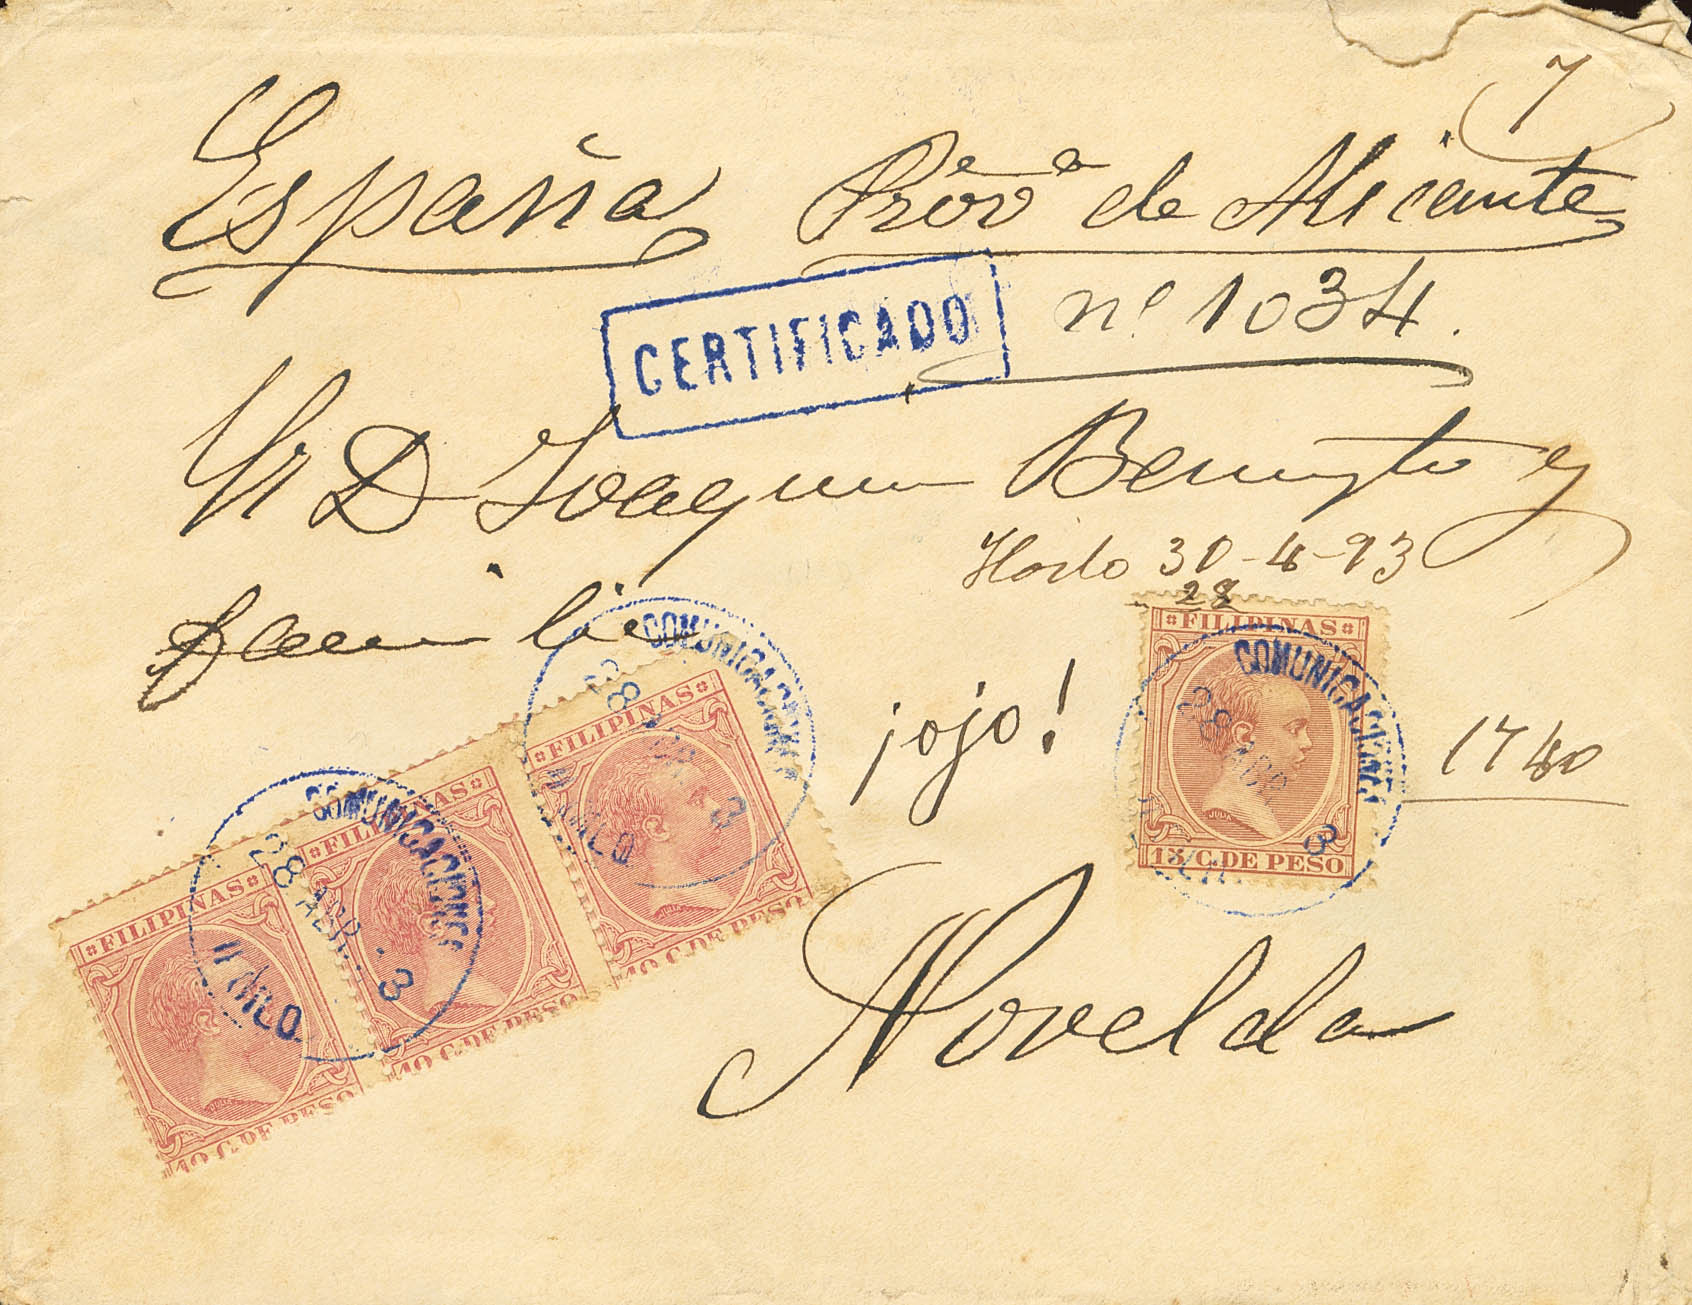 7
España Provª de Alicante
CERTIFICADO
nº 1034.
Sr D Joaquin
y
familia
30-4-93
28
¡ojo!
1740
Novelda
FILIPINAS
10 C. DE PESO
FILIPINAS
10 C. DE PESO
FILIPINAS
10 C. DE PESO
FILIPINAS
JULIA
15 C. DE PESO
COMUNICACIONES
28 ABR. 3
COMUNICACIONES
28 3
COMUNICACIONES
28 ABR 3